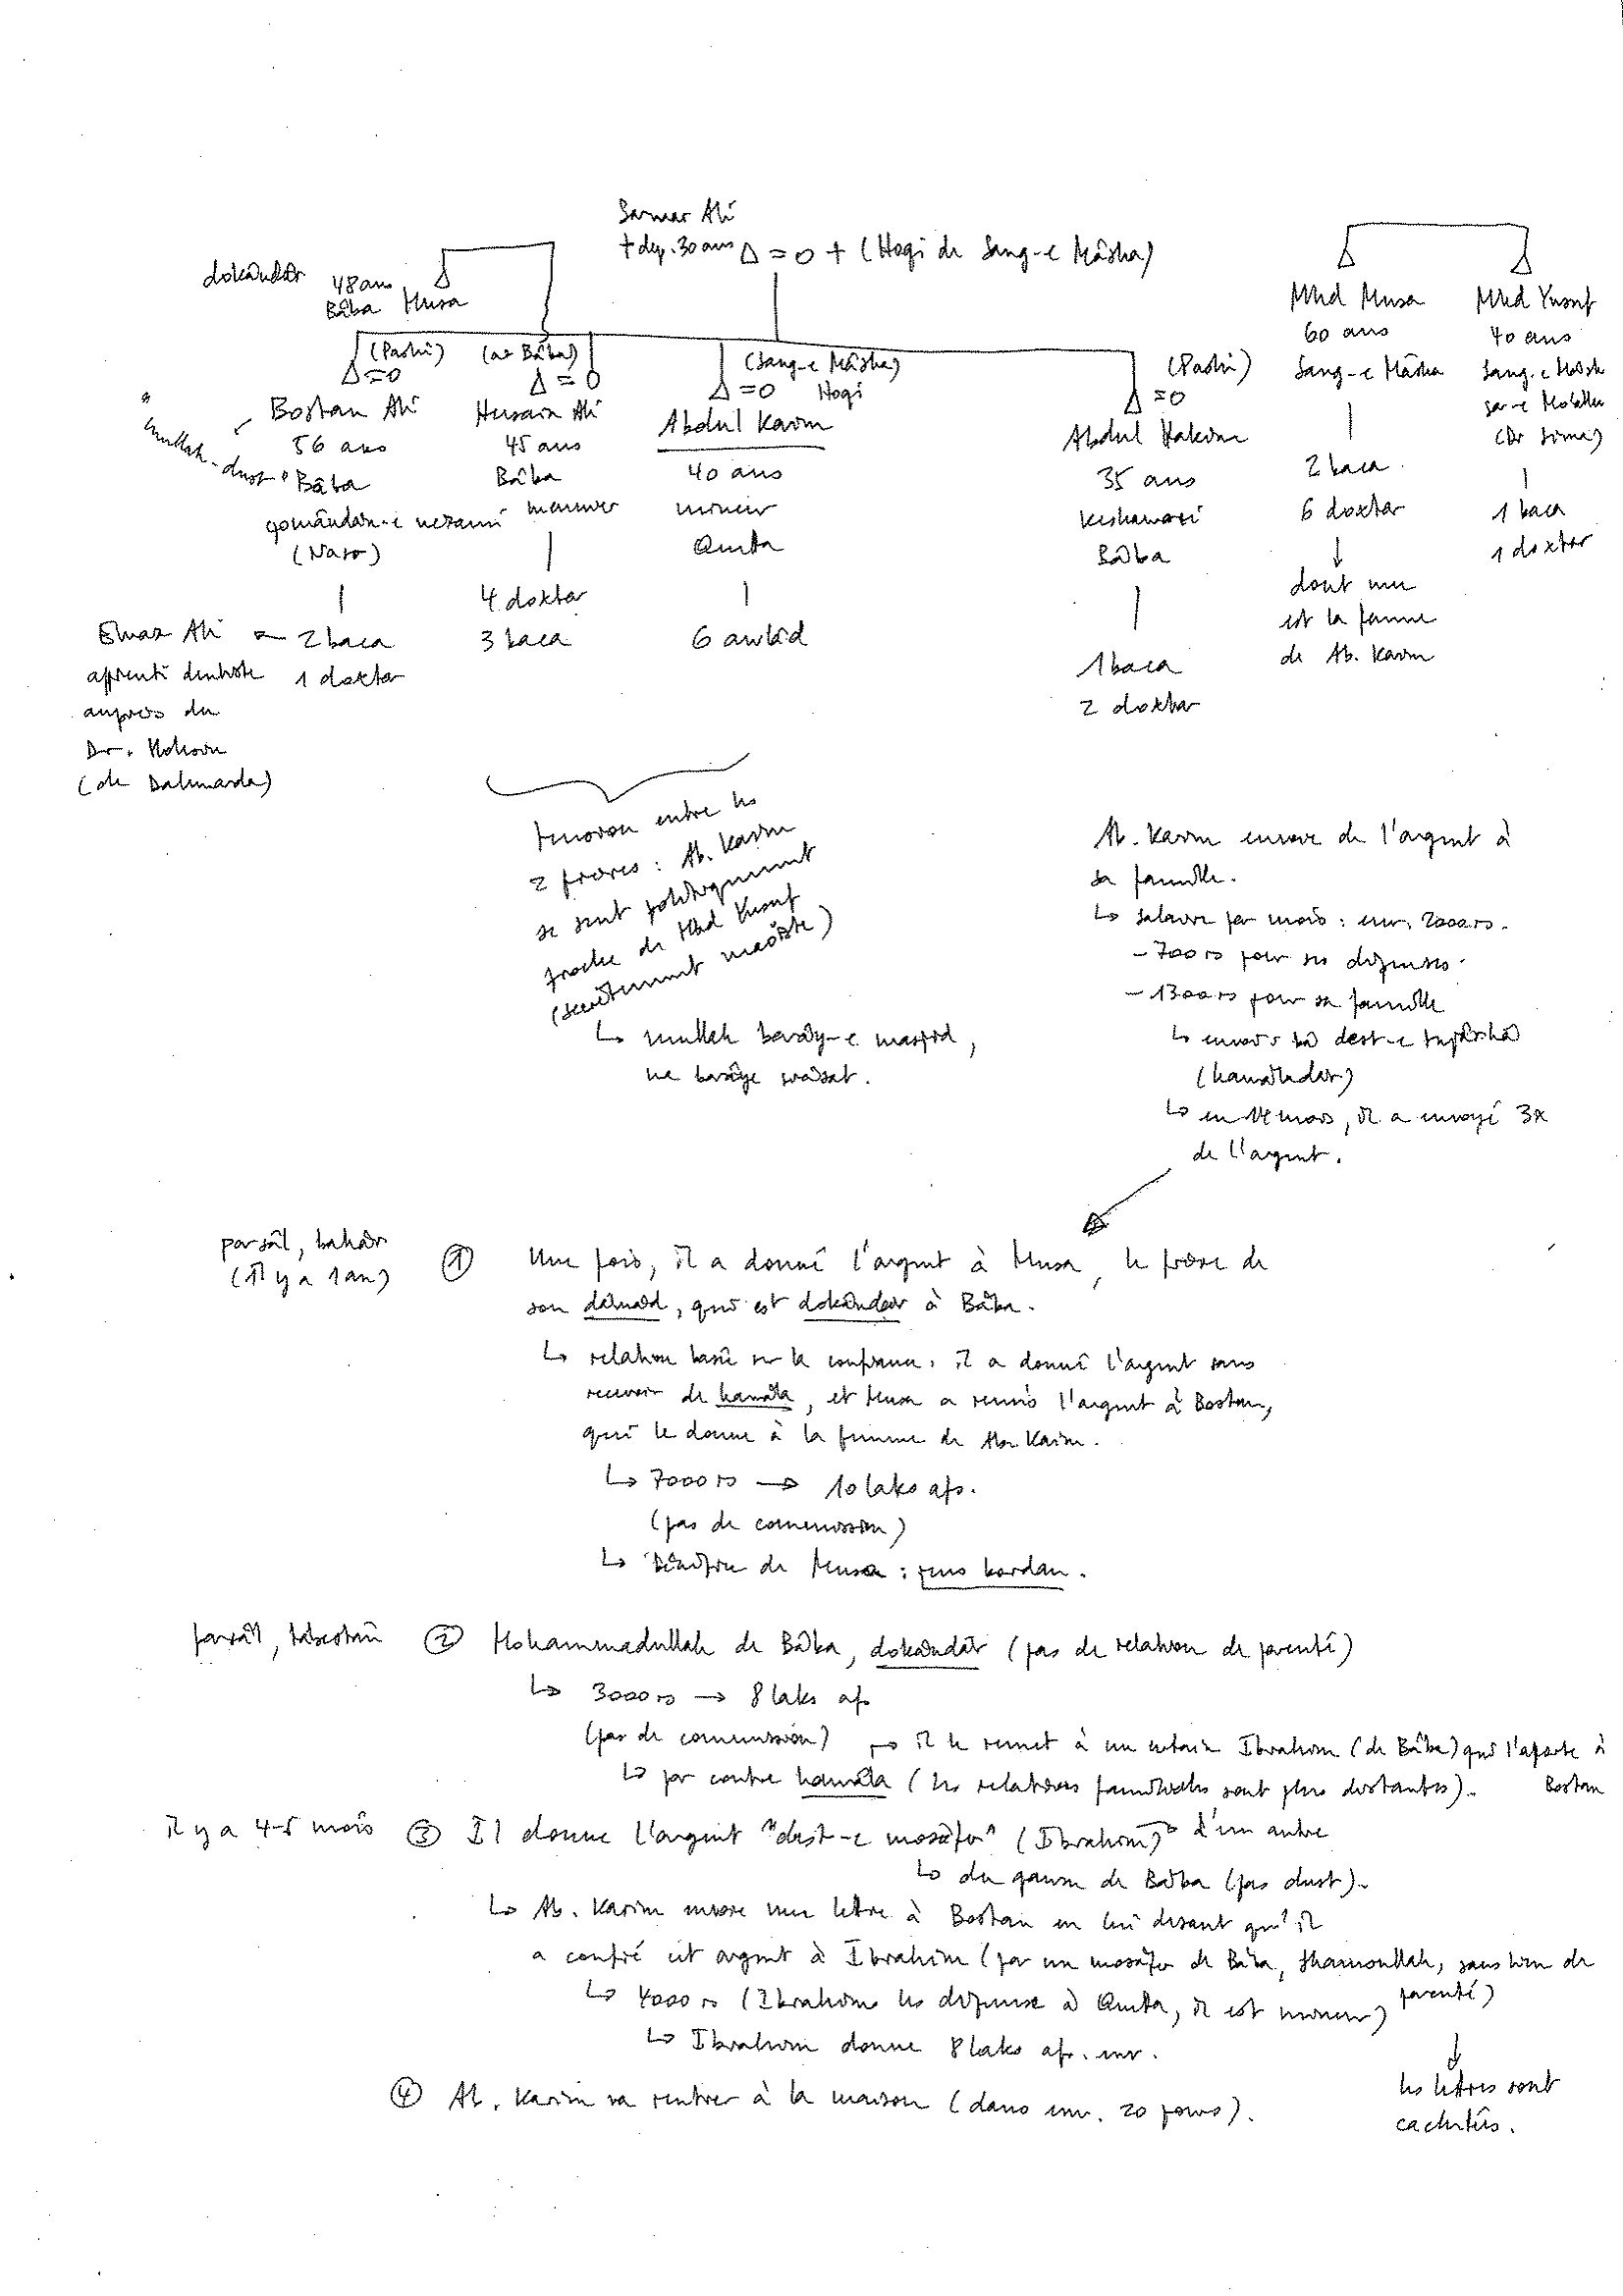 Sarwar Ali
† dep. 30 ans Δ = o † (Hogi de Sang-e Mâsha)
dokândâr 48 ans
Bâba Musa
(Pashi) (as Bâba) (Sang-e Mâsha) (Pashi)
Δ=o Δ=o Δ=o Hogi Δ=o
"mullah-dust"
Bostan Ali
56 ans
Bâba
qomândân-e nezami
(Nasr)
2 baca
1 doktar
Ewaz Ali
apprenti dentiste
auprès du
Dr.
(de
Husain Ali
45 ans
Bâba
4 doktar
3 baca
Abdul Karim
40 ans
mineur
Quetta
6 awlâd
Abdul Hakim
35 ans
Bâba
1 baca
2 doktar
Mhd Musa
60 ans
Sang-e Mâsha
2 baca
6 doktar
↓
dont une
est la femme
de Ab. Karim
Mhd Yusuf
40 ans
Sang-e Mâsha
1 baca
1 doktar
tension entre les
2 frères : Ab. Karim
se sent politiquement
proche de Mhd Yusuf
(secrètement maoïste)
↳ mullah barây-e masjed,
ne barâye siâsat.
Ab. Karim envoie de l'argent à
sa famille.
↳ salaire par mois : env. 2000 rs.
- 700 rs pour ses dépenses
- 1300 rs pour sa famille
↳ envois ba dest-e
(hawâladâr)
↳ en mois, il a envoyé 3x
de l'argent.
parsâl, bahâr
(il y a 1 an)
① Une fois, il a donné l'argent à Musa, le frère de
son dâmâd, qui est dokândâr à Bâba.
↳ relation basée sur la confiance : il a donné l'argent sans
recevoir de hawâla, et Musa a remis l'argent à Bostan,
qui le donne à la femme de Ab. Karim.
↳ 7000 rs → 10 laks afs.
(pas de commission)
↳ bénéfice de Musa : kordan.
parsâl, tâbestân ② Mohammadullah de Bâba, dokândâr (pas de relation de parenté)
↳ 3000 rs → 8 laks afs
(pas de commission) ↦ il le remet à un certain Ibrahim (de Bâba) qui l'apporte à
Bostan
↳ par contre hawâla (les relations familiales sont plus distantes).
il y a 4-5 mois ③ Il donne l'argent "dest-e mosâfer" (Ibrahim) d'un autre
↳ du qawm de Bâba (pas dust).
↳ Ab. Karim envoie une lettre à Bostan en lui disant qu'il
a confié cet argent à Ibrahim (par un mosâfer de Bâba, sans lien de
parenté)
↳ 4000 rs (Ibrahim les dépense à Quetta, il est mineur)
↳ Ibrahim donne 8 laks afs. env.
↓
les lettres sont
cachetées.
④ Ab. Karim va rentrer à la maison (dans env. 20 jours).